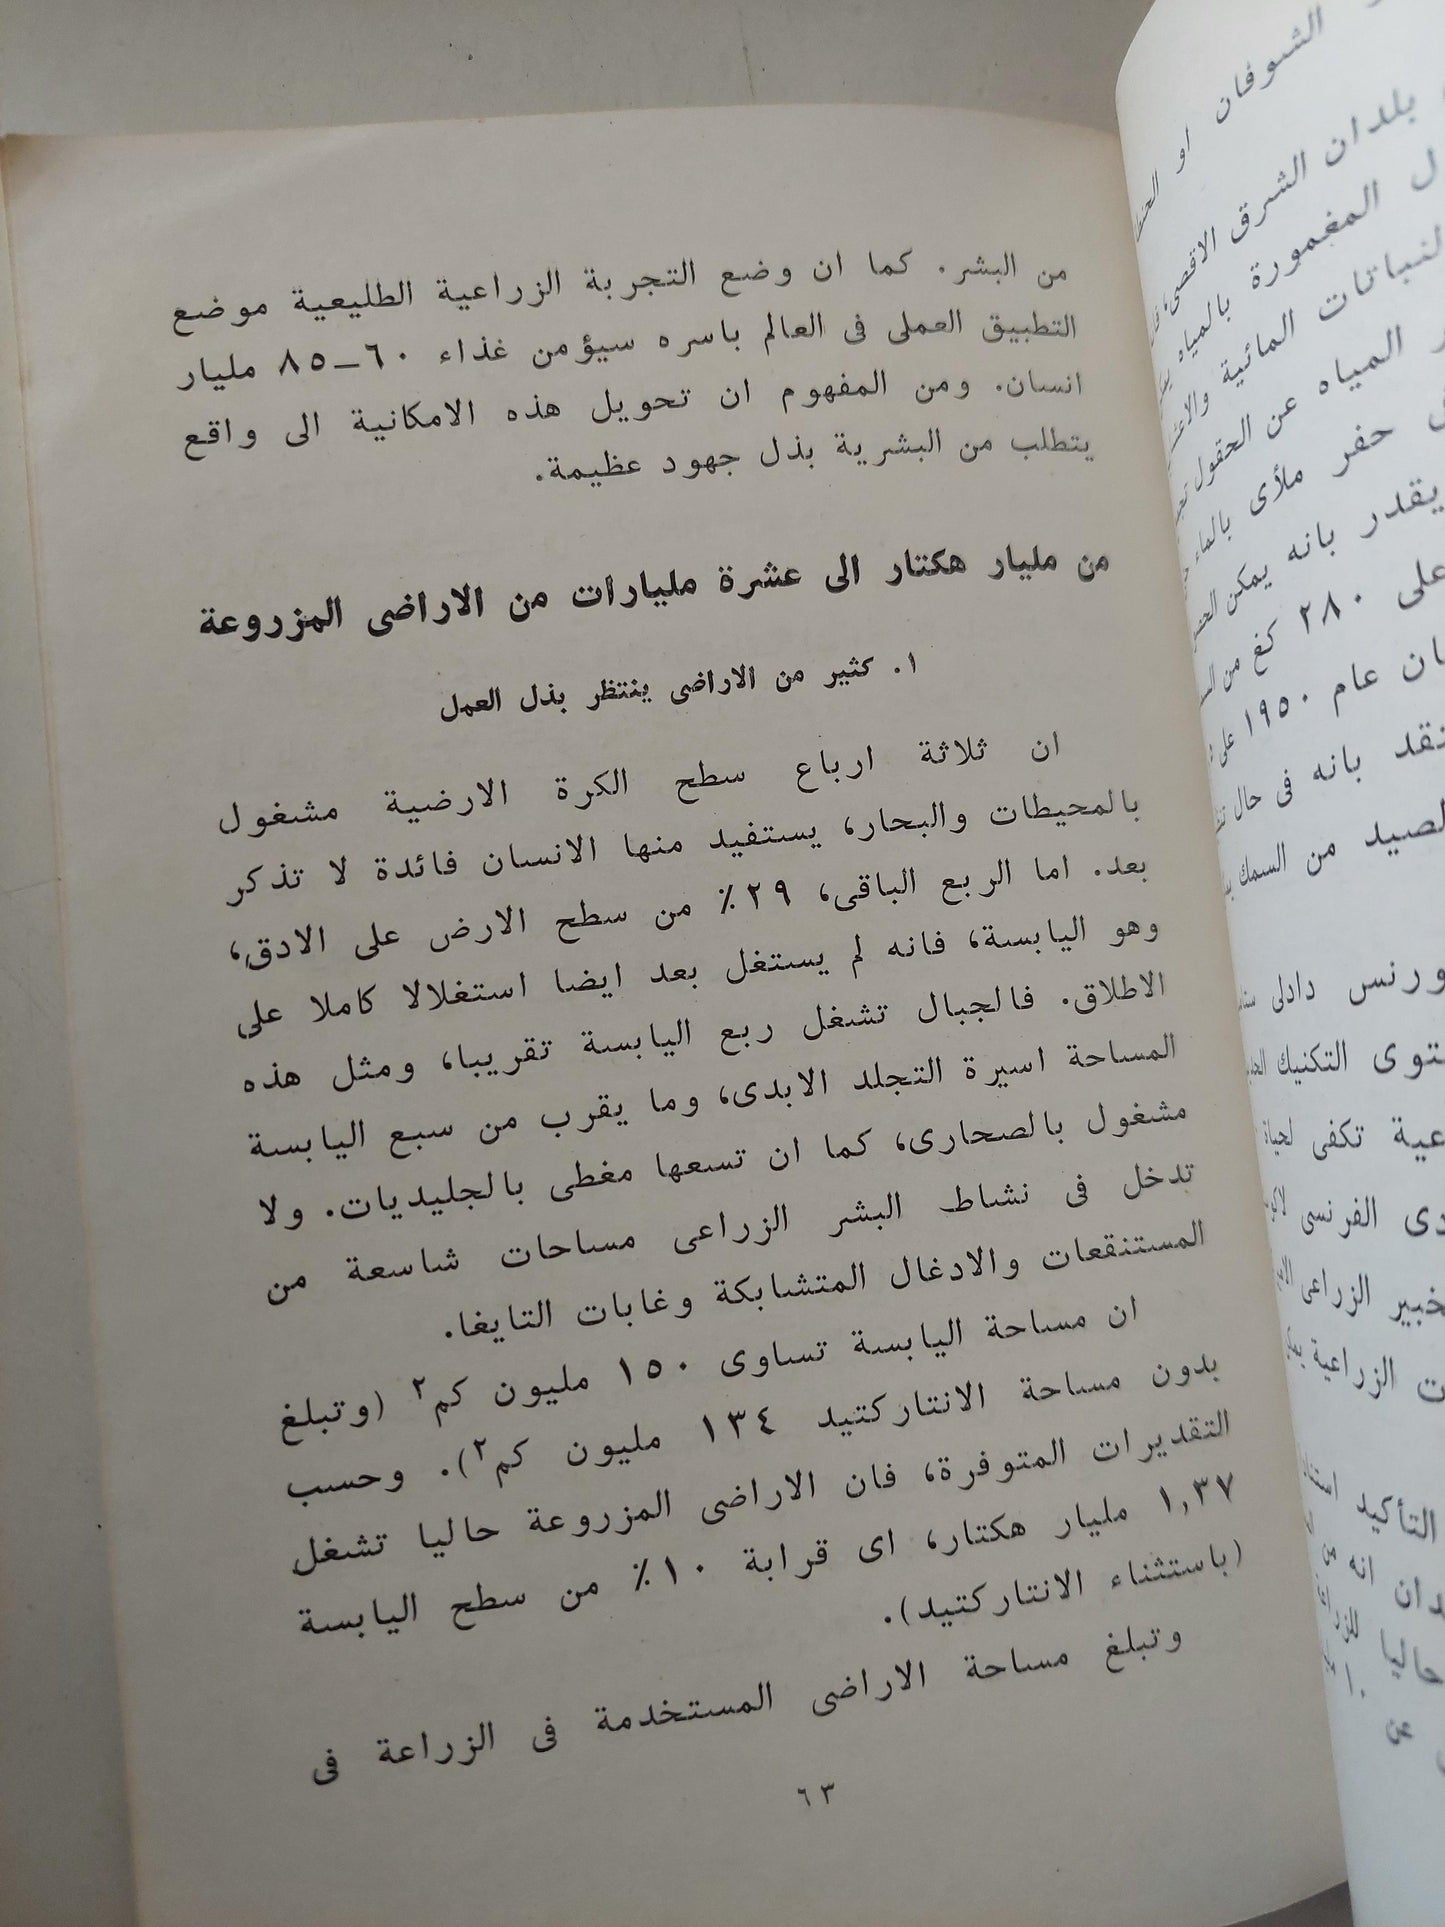 من البشر. كما ان وضع التجربة الزراعية الطليعية موضع
التطبيق العملى فى العالم باسره سيؤمن غذاء ٦٠–٨٥ مليار
انسان. ومن المفهوم ان تحويل هذه الامكانية الى واقع
يتطلب من البشرية بذل جهود عظيمة.
من مليار هكتار الى عشرة مليارات من الاراضى المزروعة
١. كثير من الاراضى ينتظر بذل العمل
ان ثلاثة ارباع سطح الكرة الارضية مشغول
بالمحيطات والبحار، يستفيد منها الانسان فائدة لا تذكر
بعد. اما الربع الباقى، ٢٩٪ من سطح الارض على الادق،
وهو اليابسة، فانه لم يستغل بعد ايضا استغلالا كاملا على
الاطلاق. فالجبال تشغل ربع اليابسة تقريبا، ومثل هذه
المساحة اسيرة التجلد الابدى، وما يقرب من سبع اليابسة
مشغول بالصحارى، كما ان تسعها مغطى بالجليديات. ولا
تدخل فى نشاط البشر الزراعى مساحات شاسعة من
المستنقعات والادغال المتشابكة وغابات التايغا.
ان مساحة اليابسة تساوى ١٥٠ مليون كم٢ (وتبلغ
بدون مساحة الانتاركتيد ١٣٤ مليون كم٢). وحسب
التقديرات المتوفرة، فان الاراضى المزروعة حاليا تشغل
١,٣٧ مليار هكتار، اى قرابة ١٠٪ من سطح اليابسة
(باستثناء الانتاركتيد).
وتبلغ مساحة الاراضى المستخدمة فى الزراعة فى
٦٣
الشوفان او
بلدان الشرق الاقصى،
المغمورة بالمياه
المائية
المياه عن الحقول
حفر ملأى بالماء
يقدر بانه يمكن
على ٢٨٠ كغ من
عام ١٩٥٠ على
بانه فى حال
من السمك
دادلى
التكنيك
تكفى لحياة
الفرنسى
الزراعى
الزراعية
التأكيد
انه من
حاليا
عن